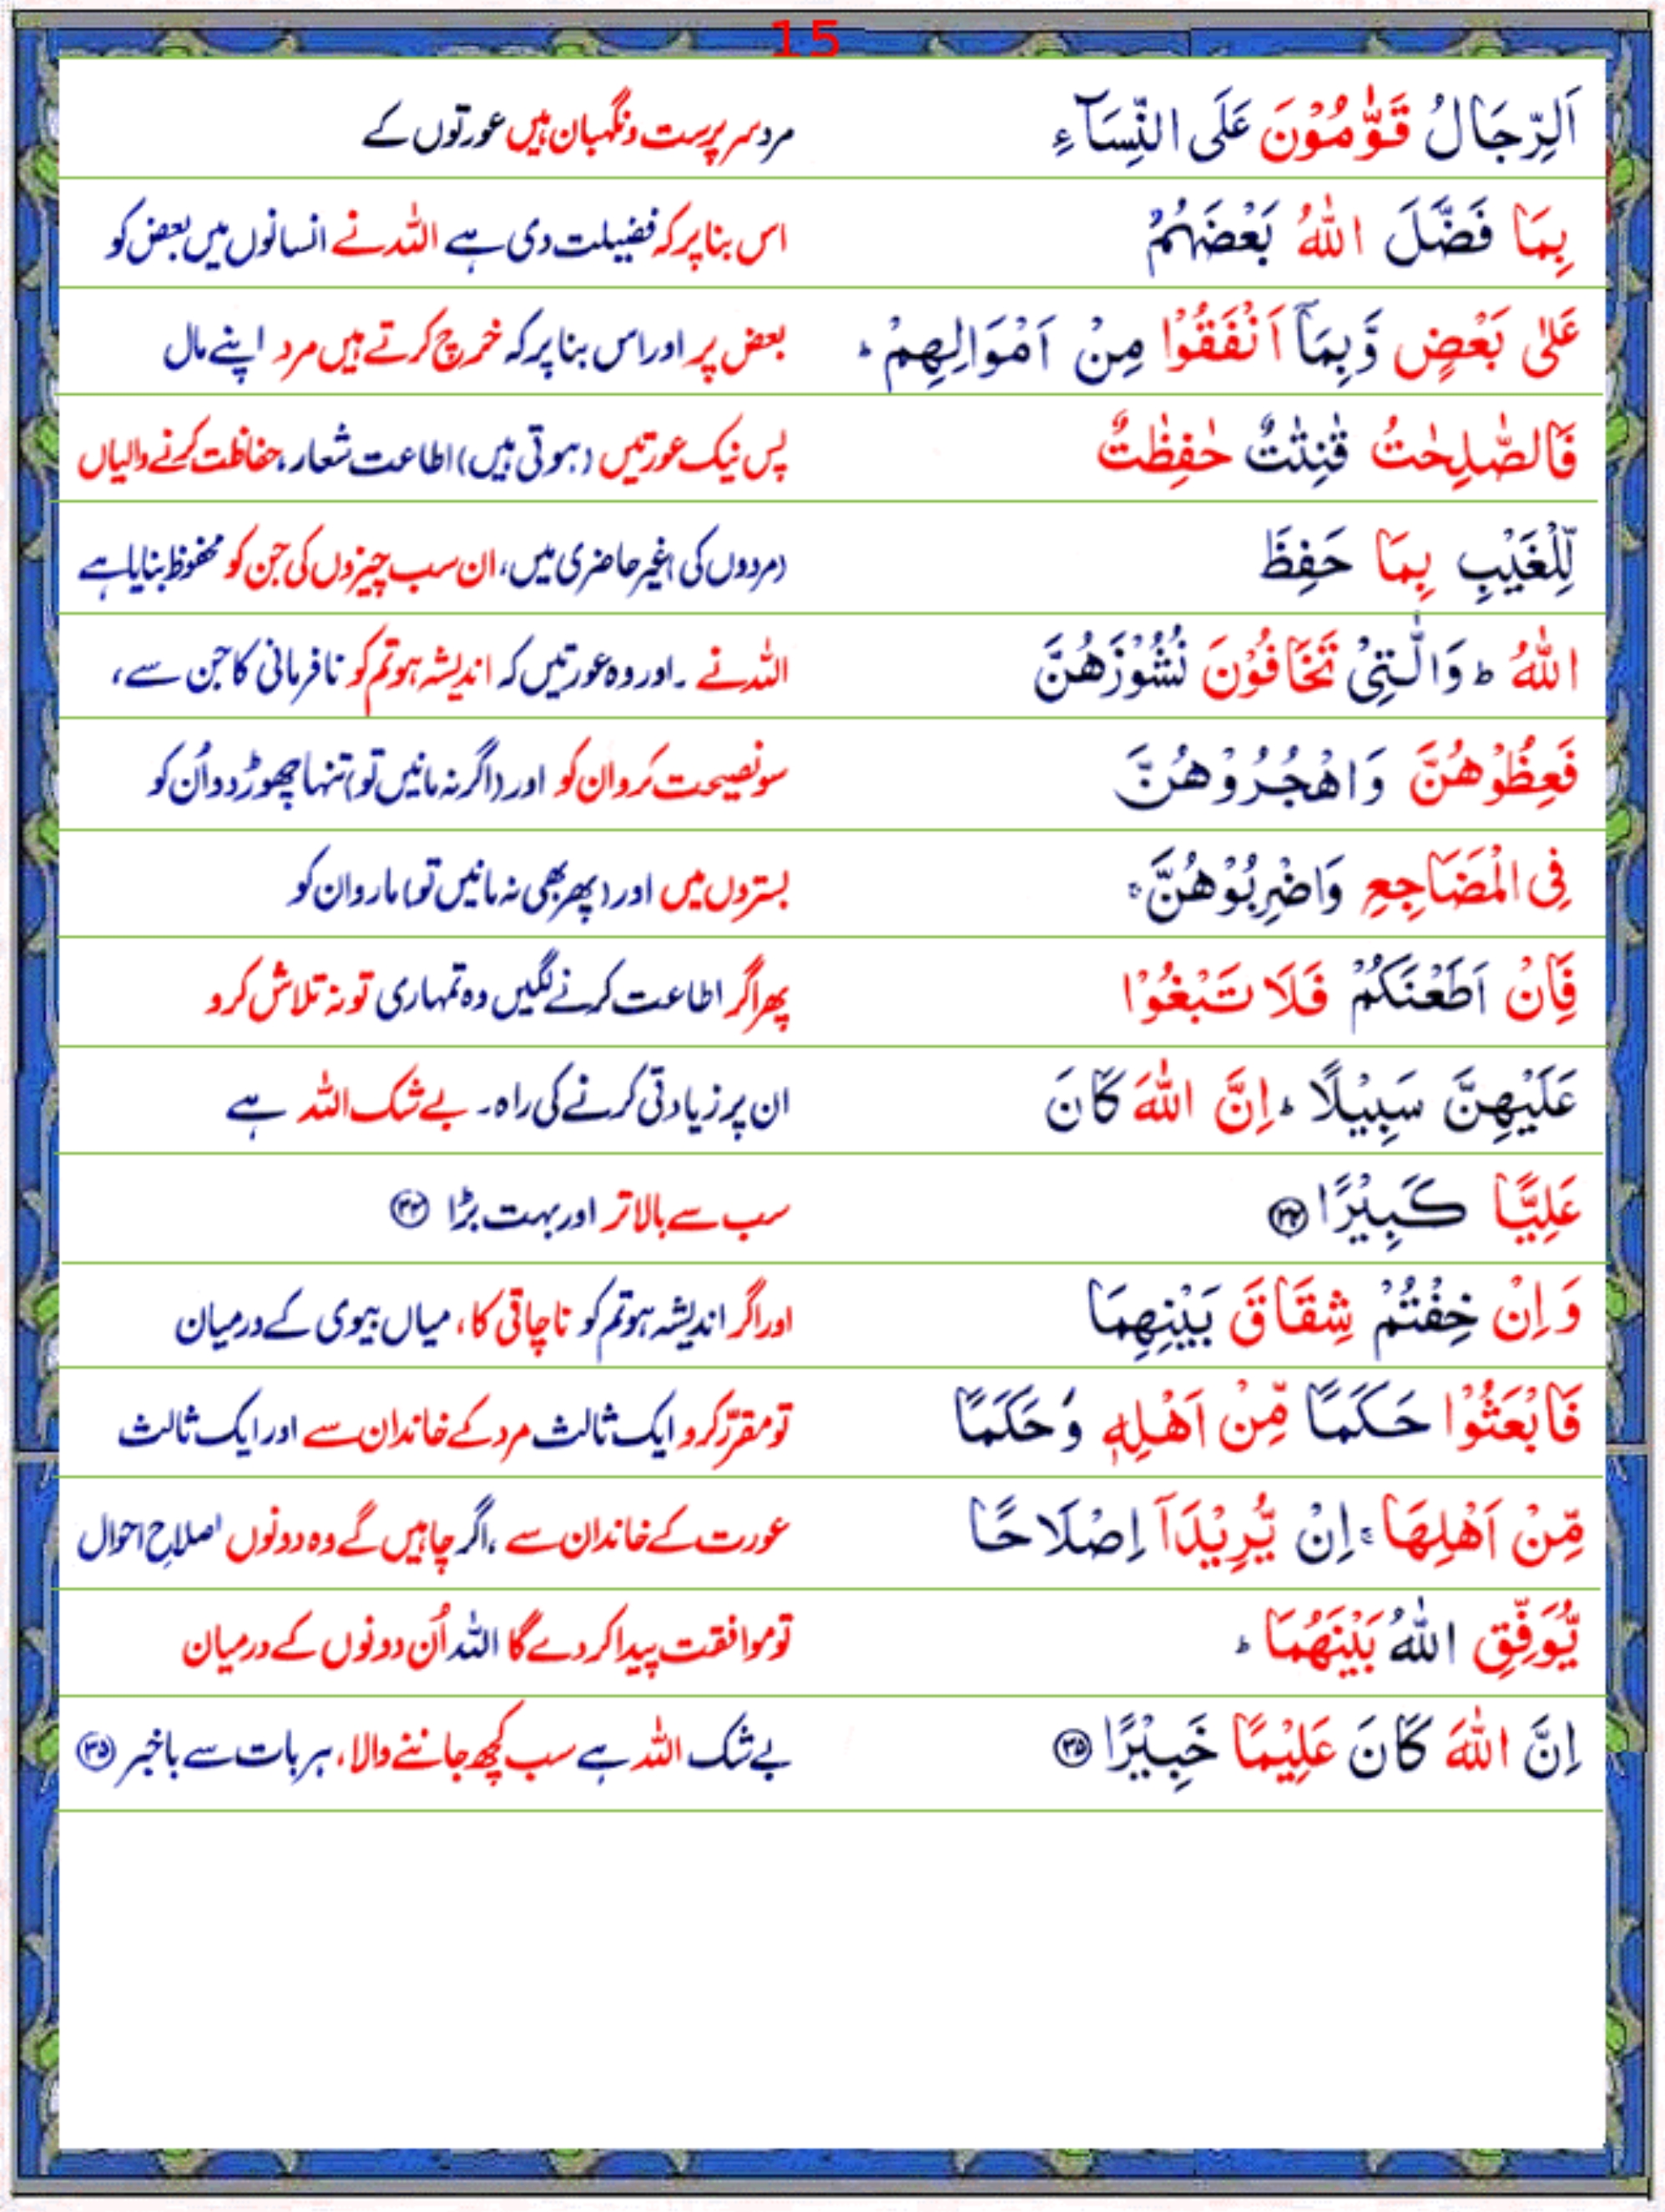 15
اَلرِّجَالُ قَوّٰمُوْنَ عَلَى النِّسَآءِ مرد سرپرست و نگہبان ہیں عورتوں کے
بِمَا فَضَّلَ اللّٰهُ بَعْضَهُمْ اس بنا پر کہ فضیلت دی ہے اللہ نے انسانوں میں بعض کو
عَلٰى بَعْضٍ وَّبِمَآ اَنْفَقُوْا مِنْ اَمْوَالِهِمْ ؕ بعض پر اور اس بنا پر کہ خرچ کرتے ہیں مرد اپنے مال
فَالصّٰلِحٰتُ قٰنِتٰتٌ حٰفِظٰتٌ پس نیک عورتیں (ہوتی ہیں) اطاعت شعار، حفاظت کرنے والیاں
لِّلْغَيْبِ بِمَا حَفِظَ (مردوں کی) غیر حاضری میں، ان سب چیزوں کی جن کو محفوظ بنایا ہے
اللّٰهُ ؕ وَالّٰتِىْ تَخَافُوْنَ نُشُوْزَهُنَّ اللہ نے ۔ اور وہ عورتیں کہ اندیشہ ہو تم کو نافرمانی کا جن سے،
فَعِظُوْهُنَّ وَاهْجُرُوْهُنَّ سو نصیحت کرو ان کو اور (اگر نہ مانیں تو) تنہا چھوڑ دو اُن کو
فِى الْمَضَاجِعِ وَاضْرِبُوْهُنَّ ۚ بستروں میں اور (پھر بھی نہ مانیں تو) مارو ان کو
فَاِنْ اَطَعْنَكُمْ فَلَا تَبْغُوْا پھر اگر اطاعت کرنے لگیں وہ تمہاری تو نہ تلاش کرو
عَلَيْهِنَّ سَبِيْلًا ؕ اِنَّ اللّٰهَ كَانَ ان پر زیادتی کرنے کی راہ۔ بے شک اللہ ہے
عَلِيًّا كَبِيْرًا ۳۴ سب سے بالاتر اور بہت بڑا ۳۴
وَاِنْ خِفْتُمْ شِقَاقَ بَيْنِهِمَا اور اگر اندیشہ ہو تم کو ناچاقی کا، میاں بیوی کے درمیان
فَابْعَثُوْا حَكَمًا مِّنْ اَهْلِهٖ وَحَكَمًا تو مقرّر کرو ایک ثالث مرد کے خاندان سے اور ایک ثالث
مِّنْ اَهْلِهَا ۚ اِنْ يُّرِيْدَآ اِصْلَاحًا عورت کے خاندان سے ،اگر چاہیں گے وہ دونوں اصلاحِ احوال
يُّوَفِّقِ اللّٰهُ بَيْنَهُمَا ؕ تو موافقت پیدا کر دے گا اللہ اُن دونوں کے درمیان
اِنَّ اللّٰهَ كَانَ عَلِيْمًا خَبِيْرًا ۳۵ بے شک اللہ ہے سب کچھ جاننے والا، ہر بات سے باخبر ۳۵